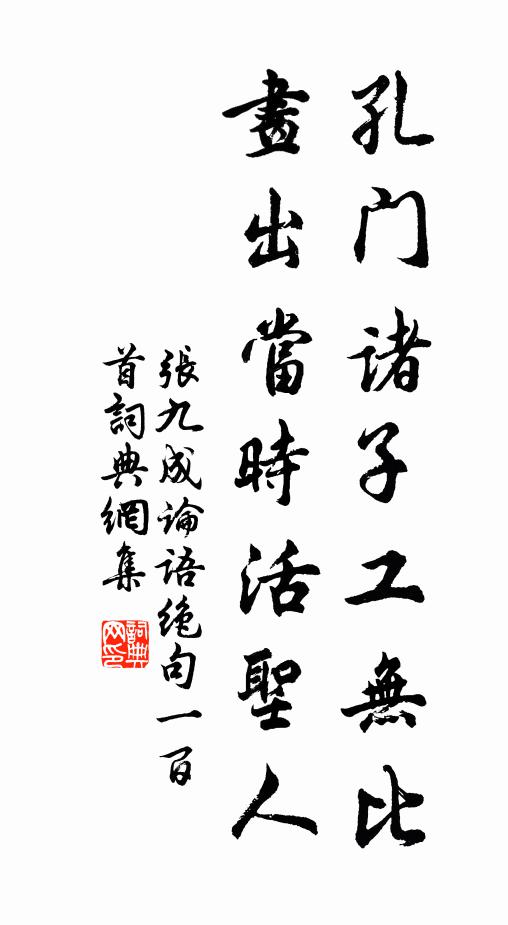 孔门诸子工無比
畫出當時活聖人
張九成论语绝句一百
首詞典網集
詞典网印